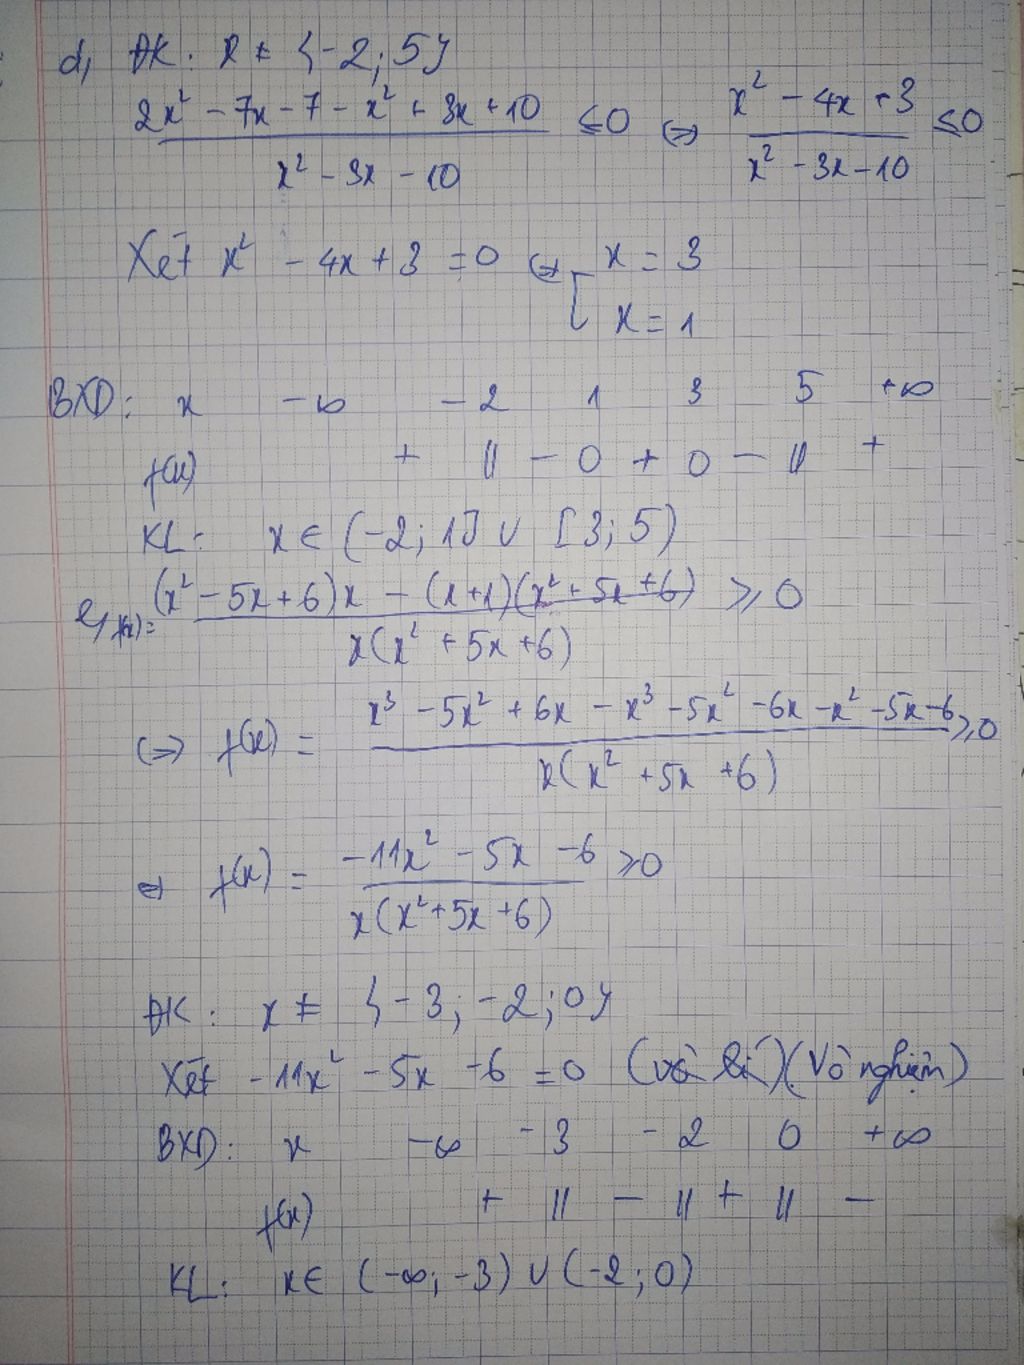 d, ĐK: x ≠ {-2; 5}
(2x² - 7x - 7 - x² + 3x + 10)/(x² - 3x - 10) ≤ 0 ⇔ (x² - 4x + 3)/(x² - 3x - 10) ≤ 0
Xét x² - 4x + 3 = 0 ⇔ [ x = 3
x = 1
BXD: x -∞ -2 1 3 5 +∞
f(x) + || - 0 + 0 - || +
KL: x ∈ (-2; 1] ∪ [3; 5)
e, f(x) = ((x² - 5x + 6)x - (x+1)(x² + 5x + 6))/(x(x² + 5x + 6)) ≥ 0
⇔ f(x) = (x³ - 5x² + 6x - x³ - 5x² - 6x - x² - 5x - 6)/(x(x² + 5x + 6)) ≥ 0
⇔ f(x) = (-11x² - 5x - 6)/(x(x² + 5x + 6)) ≥ 0
ĐK: x ≠ {-3; -2; 0}
Xét -11x² - 5x - 6 = 0 (vô lí) (Vô nghiệm)
BXD: x -∞ -3 -2 0 +∞
f(x) + || - || + || -
KL: x ∈ (-∞; -3) ∪ (-2; 0)